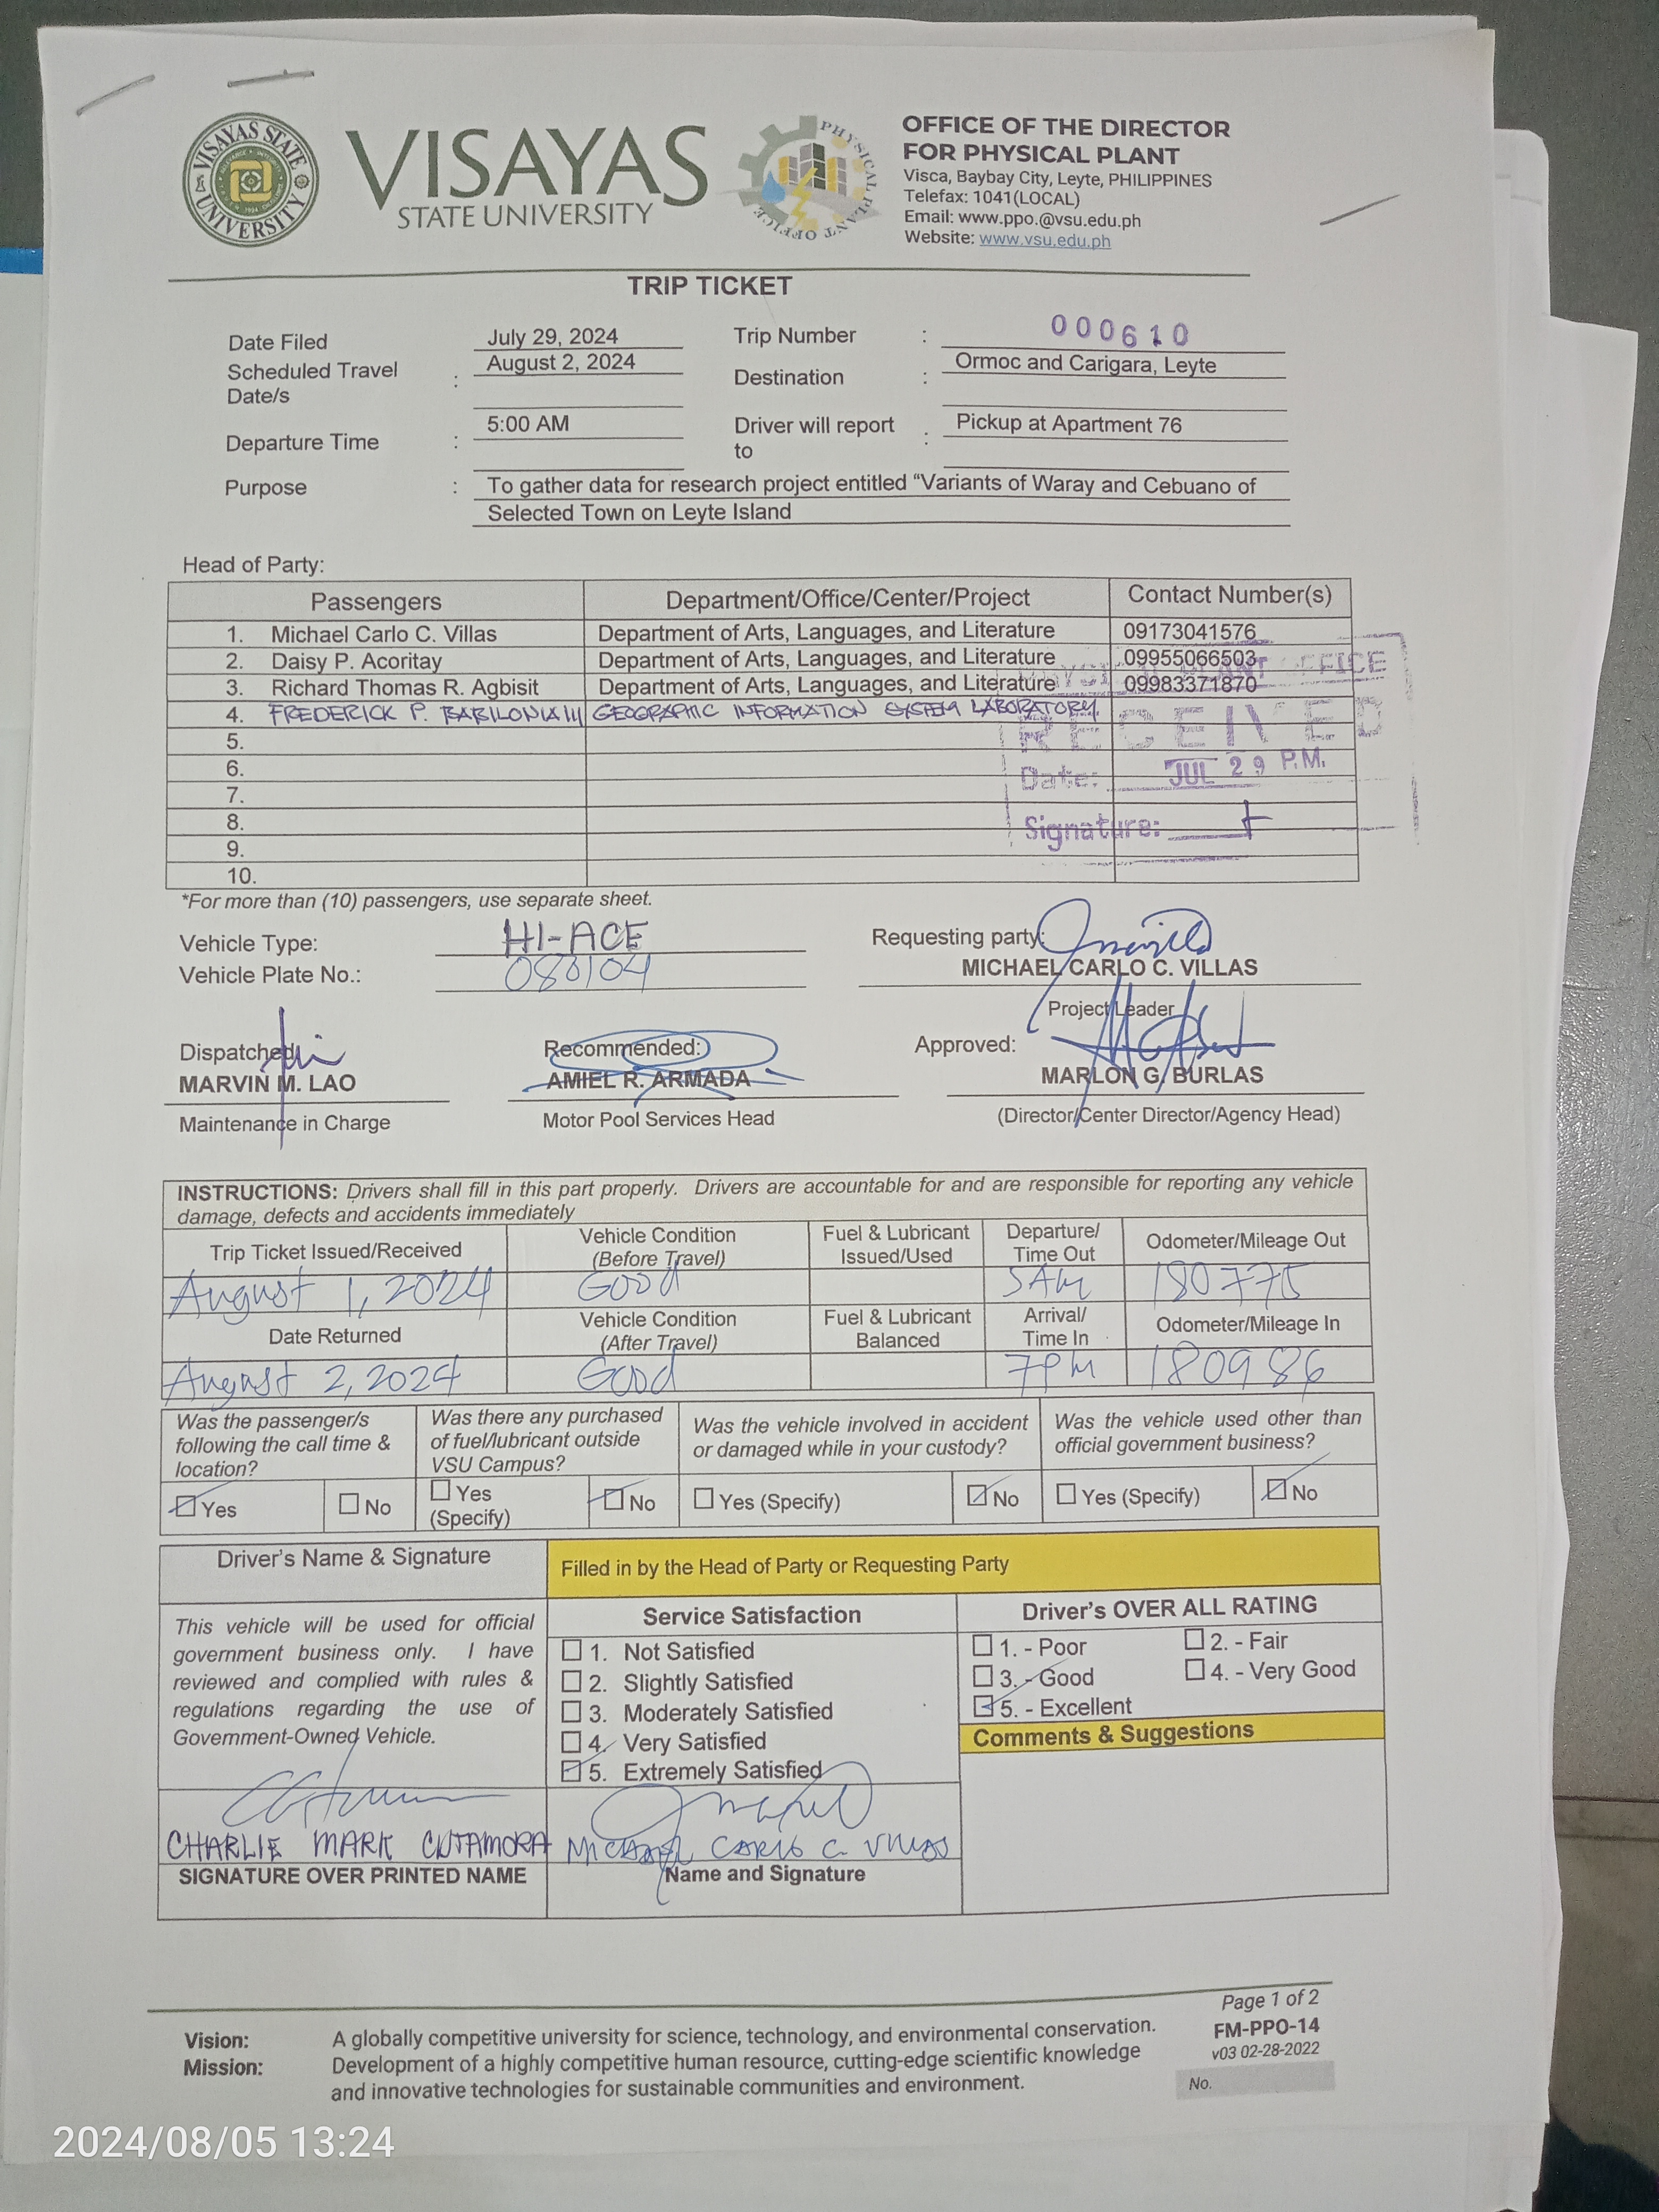 VISAYAS STATE UNIVERSITY
VISAYAS
STATE UNIVERSITY
PHYSICAL PLANT OFFICE
OFFICE OF THE DIRECTOR
FOR PHYSICAL PLANT
Visca, Baybay City, Leyte, PHILIPPINES
Telefax: 1041(LOCAL)
Email: www.ppo.@vsu.edu.ph
Website: www.vsu.edu.ph
TRIP TICKET
Date Filed July 29, 2024 Trip Number : 000610
Scheduled Travel Date/s : August 2, 2024 Destination : Ormoc and Carigara, Leyte
Departure Time : 5:00 AM Driver will report to : Pickup at Apartment 76
Purpose : To gather data for research project entitled “Variants of Waray and Cebuano of
Selected Town on Leyte Island
Head of Party:
Passengers Department/Office/Center/Project Contact Number(s)
1. Michael Carlo C. Villas Department of Arts, Languages, and Literature 09173041576
2. Daisy P. Acoritay Department of Arts, Languages, and Literature 09955066503
3. Richard Thomas R. Agbisit Department of Arts, Languages, and Literature 09983371870
4. FREDERICK P. BABILONIA III GEOGRAPHIC INFORMATION SYSTEM LABORATORY
5.
6.
7.
8.
9.
10.
PHYSICAL PLANT OFFICE
RECEIVED
Date: JUL 29 P.M.
Signature:
*For more than (10) passengers, use separate sheet.
Vehicle Type: HI-ACE
Vehicle Plate No.: 080104
Requesting party:
MICHAEL CARLO C. VILLAS
Project Leader
Dispatched: Recommended: Approved:
MARVIN M. LAO AMIEL R. ARMADA MARLON G. BURLAS
Maintenance in Charge Motor Pool Services Head (Director/Center Director/Agency Head)
INSTRUCTIONS: Drivers shall fill in this part properly. Drivers are accountable for and are responsible for reporting any vehicle
damage, defects and accidents immediately
Trip Ticket Issued/Received Vehicle Condition (Before Travel) Fuel & Lubricant Issued/Used Departure/ Time Out Odometer/Mileage Out
August 1, 2024 Good 5AM 180775
Date Returned Vehicle Condition (After Travel) Fuel & Lubricant Balanced Arrival/ Time In Odometer/Mileage In
August 2, 2024 Good 7PM 180986
Was the passenger/s following the call time & location?
Yes No
Was there any purchased of fuel/lubricant outside VSU Campus?
Yes (Specify) No
Was the vehicle involved in accident or damaged while in your custody?
Yes (Specify) No
Was the vehicle used other than official government business?
Yes (Specify) No
Driver's Name & Signature
Filled in by the Head of Party or Requesting Party
This vehicle will be used for official
government business only. I have
reviewed and complied with rules &
regulations regarding the use of
Government-Owned Vehicle.
CHARLIE MARK CUTAMORA
SIGNATURE OVER PRINTED NAME
Service Satisfaction
1. Not Satisfied
2. Slightly Satisfied
3. Moderately Satisfied
4. Very Satisfied
5. Extremely Satisfied
MICHAEL CARLO C. VILLAS
Name and Signature
Driver's OVER ALL RATING
1. - Poor 2. - Fair
3. - Good 4. - Very Good
5. - Excellent
Comments & Suggestions
Vision: A globally competitive university for science, technology, and environmental conservation.
Mission: Development of a highly competitive human resource, cutting-edge scientific knowledge
and innovative technologies for sustainable communities and environment.
Page 1 of 2
FM-PPO-14
v03 02-28-2022
No.
2024/08/05 13:24